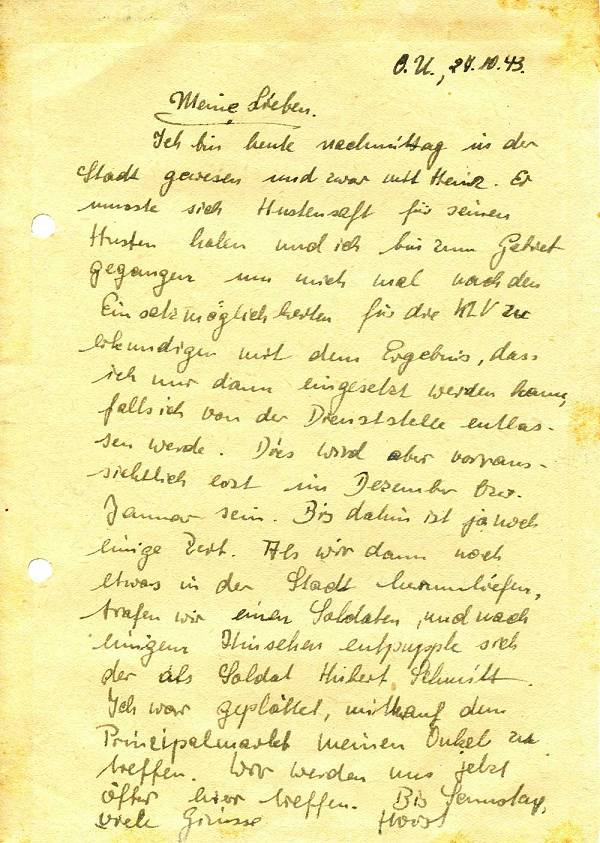 O.U., 27.10.43.
Meine Lieben.
Ich bin heute nachmittag in der
Stadt gewesen und zwar mit Heinz. Er
musste sich Hustensaft für seinen
Husten holen und ich bin zum Gebiet
gegangen um mich mal nach den
Einsatzmöglichkeiten für die KLV zu
erkundigen mit dem Ergebnis, dass
ich nur dann eingesetzt werden kann,
falls ich von der Dienststelle entlas-
sen werde. Dies wird aber voraus-
sichtlich erst im Dezember bzw.
Januar sein. Bis dahin ist ja noch
einige Zeit. Als wir dann noch
etwas in der Stadt herumliefen,
trafen wir einen Soldaten, und nach
einigem Hinsehen entpuppte sich
der als Soldat Hubert Schmitt.
Ich war geplättet, mitten auf dem
Principalmarkt meinen Onkel zu
treffen. Wir werden uns jetzt
öfter hier treffen. Bis Samstag,
viele Grüsse Horst